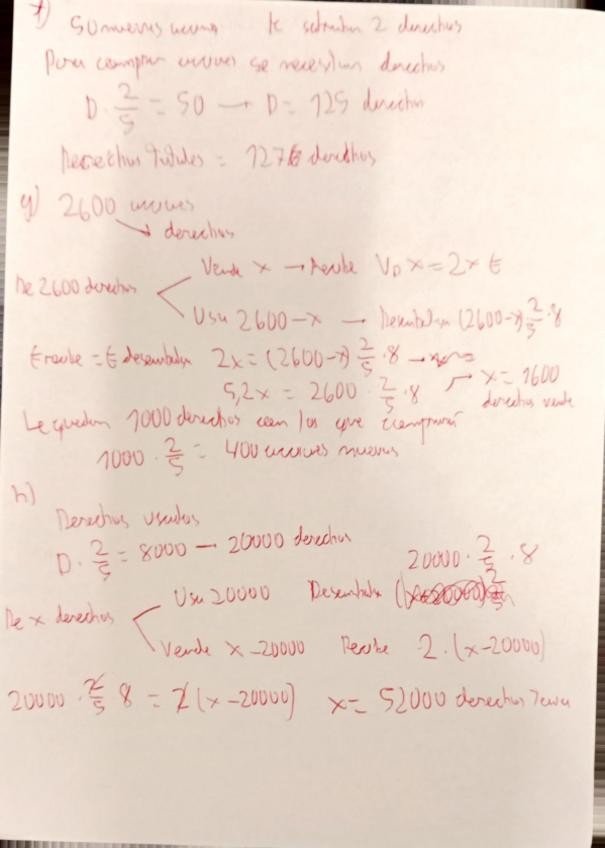 f) 50 nuevas acciones le sobraban 2 derechos
Para comprar acciones se necesitan derechos
D · 2/5 = 50 → D = 125 derechos
Derechos totales = derechos
g) 2600 acciones
↘ derechos
De 2600 derechos
Vende x → Recibe V_D x = 2x €
Usa 2600-x → Desembolsa (2600-x) 2/5 · 8
€ recibe = € desembolsa 2x = (2600-x) 2/5 · 8 →
5,2x = 2600 · 2/5 · 8 → x = 1600
derechos vende
Le quedan 1000 derechos con los que comprará
1000 · 2/5 = 400 acciones nuevas
h)
Derechos usados
D · 2/5 = 8000 — 20000 derechos
20000 · 2/5 · 8
De x derechos
Usa 20000 Desembolsa
Vende x-20000 Recibe 2·(x-20000)
20000 · 2/5 8 = 2(x-20000) x = 52000 derechos